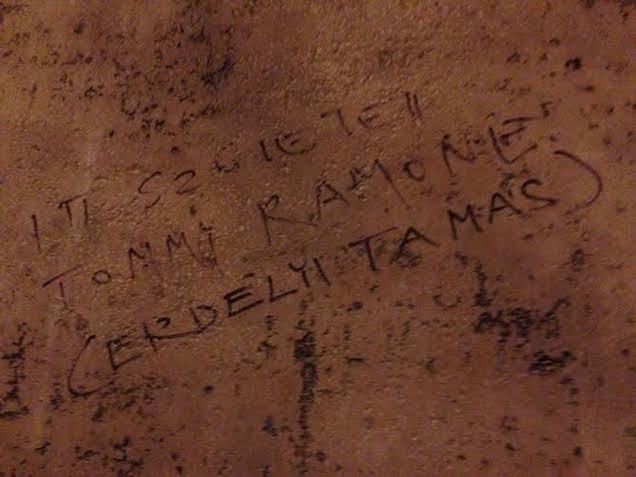 ITT SZÜLETETT
TOMMY RAMONE
(ERDÉLYI TAMÁS)